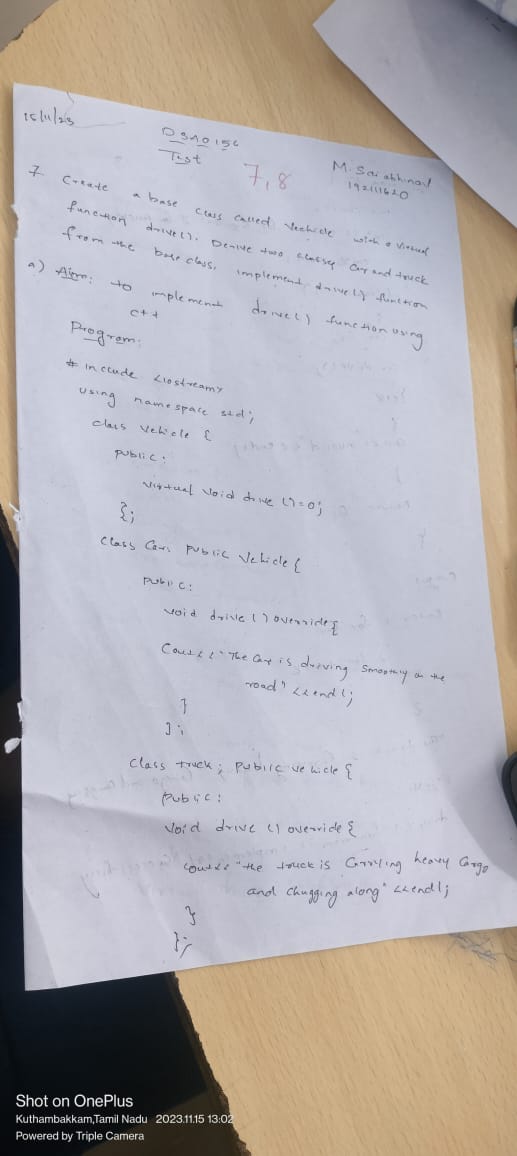 15/11/23
DSA0156
Test
7,8
M. Sai abhinav
192111620
7. Create a base class called Vechicle with a virtual
function drive(). Derive two classes Car and truck
from the base class, implement drive() function
a) Aim: to implement drive() function using
c++
Program:
# include <iostream>
using namespace std;
class Vehicle {
public:
virtual void drive ()=0;
};
class Car: public Vehicle {
public:
void drive () override {
Cout<<"The Car is driving smoothly on the
road" <<endl;
}
};
Class truck; public vehicle {
public:
void drive () override {
cout<< "the truck is Carrying heavy Cargo
and chugging along" <<endl;
}
};
Shot on OnePlus
Kuthambakkam,Tamil Nadu 2023.11.15 13:02
Powered by Triple Camera